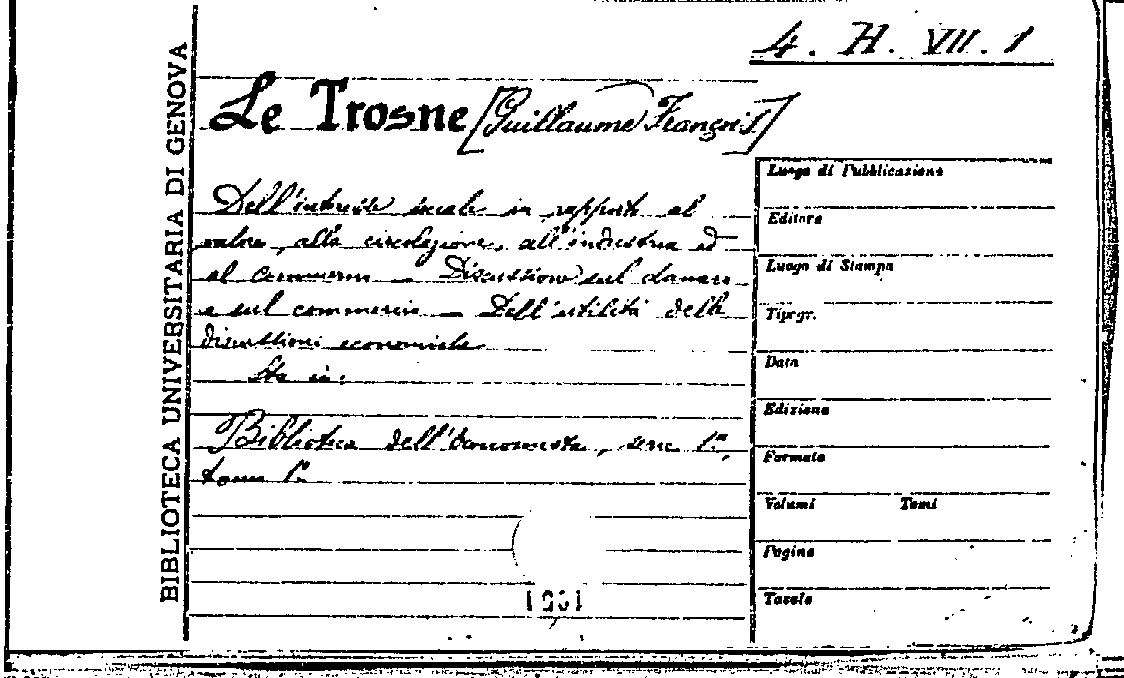 4. H. VII. 1
Le Trosne [Guillaume François]
BIBLIOTECA UNIVERSITARIA DI GENOVA
Dell'interesse sociale in rapporto al
valore, alla circolazione, all'industria ed
al commercio — Discussione sul danaro
e sul commercio — Dell'utilità delle
discussioni economiche
Sta in:
Biblioteca dell'Economista, serie 1.ª,
tomo 1.º
Luogo di Pubblicazione
Editore
Luogo di Stampa
Tipogr.
Data
Edizione
Formato
Volumi Tomi
Pagine
Tavole